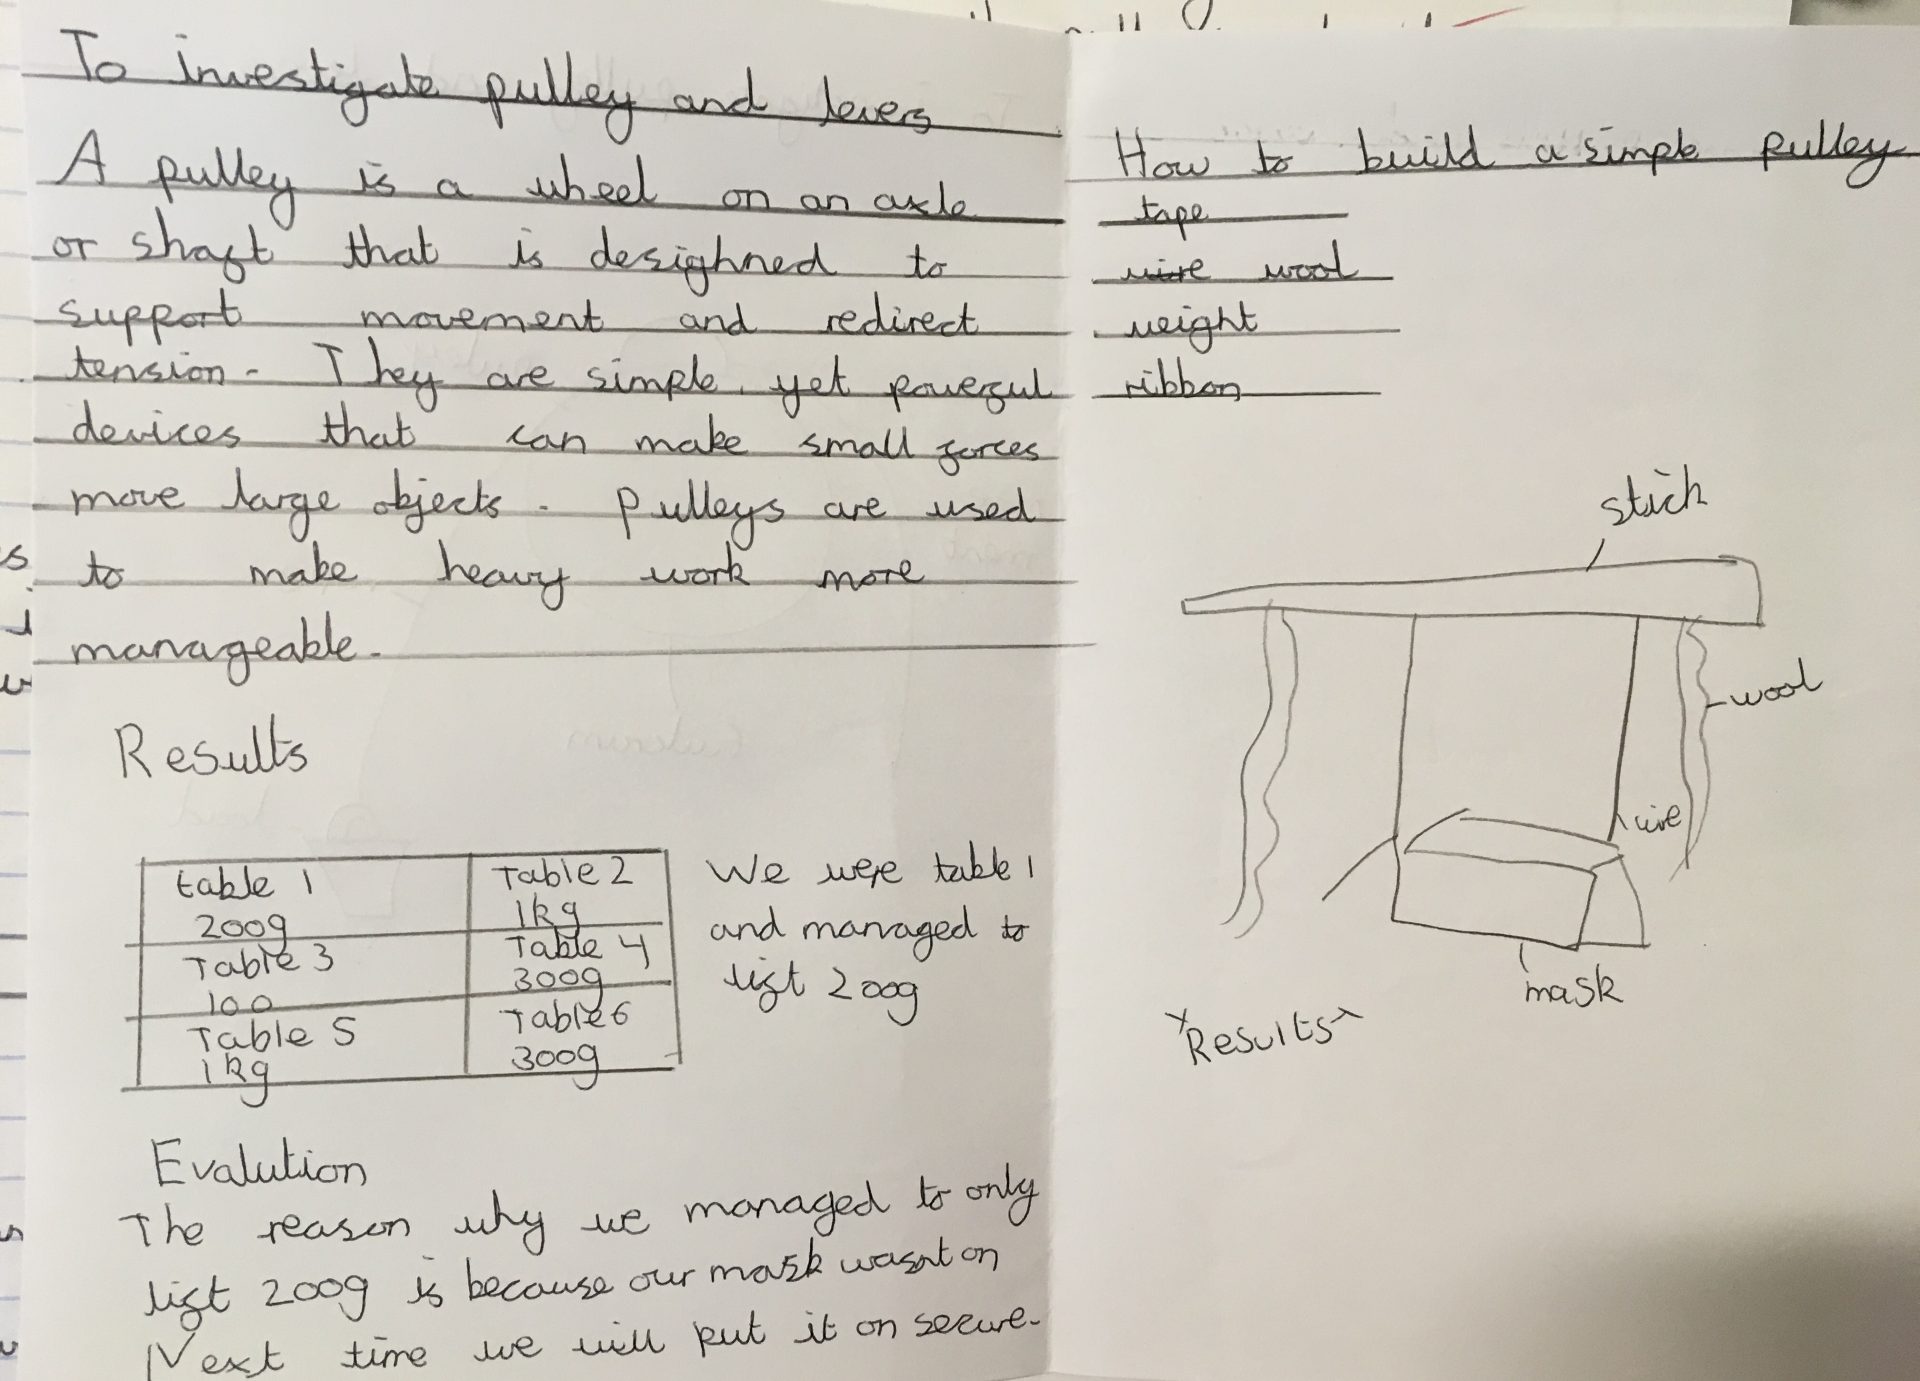 To investigate pulley and levers
A pulley is a wheel on an axle
or shaft that is desighned to
support movement and redirect
tension. They are simple, yet powerful
devices that can make small forces
move large objects. Pulleys are used
to make heavy work more
manageable.
Results
table 1
200g
Table 2
1kg
Table 3
100
Table 4
300g
Table 5
1kg
Table 6
300g
We were table 1
and managed to
lift 200g
Evalution
The reason why we managed to only
lift 200g is because our mask wasnt on
Next time we will put it on secure.
How to build a simple pulley
tape
wire wool
weight
ribbon
stick
wool
wire
mask
Results